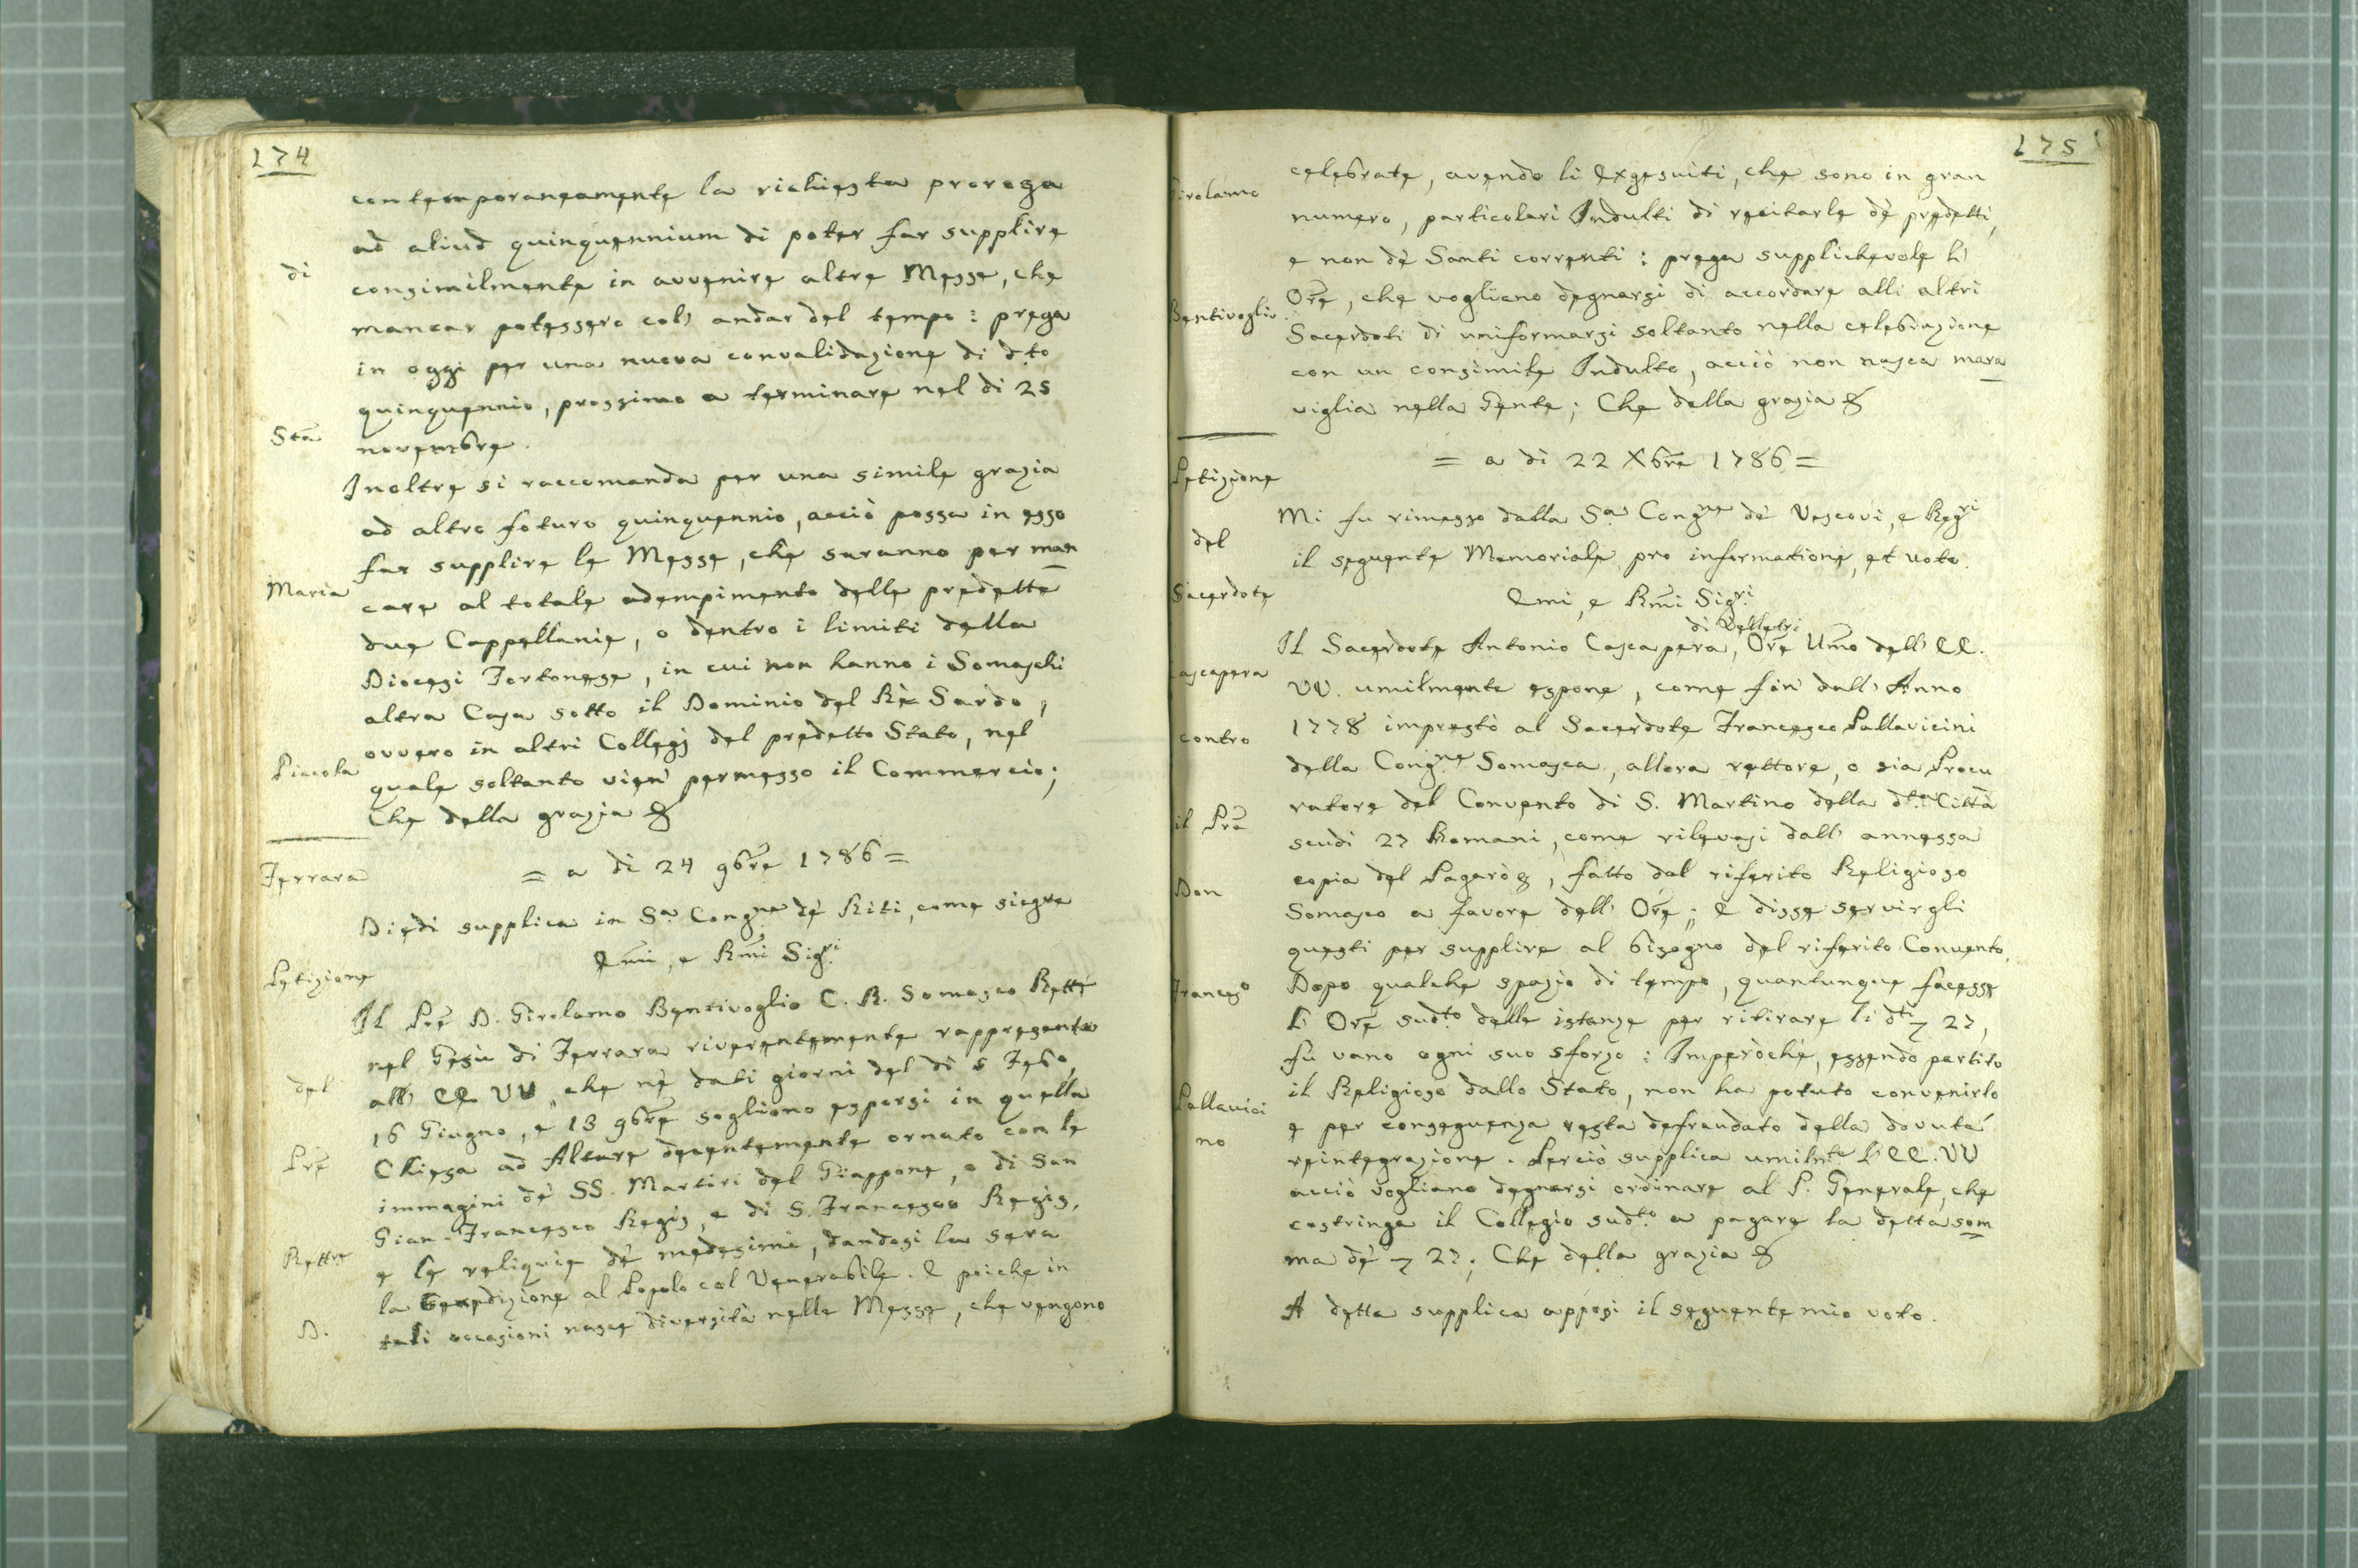 174
contemporaneamente la richiesta proroga
ad aliud quinquennium di poter far supplire
di
consimilmente in avvenire altre Messe, che
mancar potessero coll' andar del tempo: prega
in oggi per una nuova convalidazione di d.to
quinquennio, prossimo a terminare nel di 25
Sta
novembre.
Inoltre si raccomanda per una simile grazia
ad altro futuro quinquennio, acciò possa in esso
far supplire le Messe, che saranno per man
Maria
care al totale adempimento delle predette
due Cappellanie, o dentro i limiti della
Diocesi Tortonese, in cui non hanno i Somaschi
altra Casa sotto il Dominio del Rè Sardo,
ovvero in altri Collegj del predetto Stato, nel
Piccola
quale soltanto vien' permesso il Commercio;
Che della grazia &
= a di 24 9bre 1786 =
Ferrara
Diedi supplica in Sa. Congne de' Riti, come siegue
Emi, e Rmi Sigri
Petizione
Il Pre D. Girolamo Bentivoglio C. R. Somasco Rettre
nel Gesù di Ferrara riverentemente rappresenta
all' EE VV, che nè dati giorni del dì 5 Febo,
del
16 Giugno, e 13 9bre sogliono espersi in quella
Chiesa ad Altare decentemente ornato con le
Pre
immagini de' SS. Martiri del Giappone, e di San
Gian-Francesco Regis, e di S. Francesco Regis,
e le reliquie de' medesimi, dandosi la sera
Rettre
la Benedizione al Popolo col Venerabile. E poiche in
D.
tali occasioni nasce diversità nelle Messe, che vengono
175
celebrate, avendo li Exgesuiti, che sono in gran
Girolamo
numero, particolari Indulti di recitarle de' predetti,
e non de' Santi correnti: prega supplichevole l'
Ore, che vogliano degnarsi di accordare alli altri
Bentivoglio
Sacerdoti di uniformarsi soltanto nella celebrazione
con un consimile Indulto, acciò non nasca mara
viglia nella Gente; Che della grazia &
= a di 22 Xbre 1786 =
Petizione
Mi fu rimesso dalla Sa. Congne de' Vescovi, e Regri
del
il seguente Memoriale pro informatione, et voto.
Sacerdote
Emi, e Rmi Sigri
di Velletri
Il Sacerdote Antonio Cascapera, Ore Umo dell' EE.
Cascapera
VV. umilmente espone, come fin' dall' Anno
1778 imprestò al Sacerdote Francesco Pallavicini
contro
della Congne Somasca, allora rettore, o sia Procu
ratore del Convento di S. Martino della dta Città
il Pre
scudi 27 Romani, come rilevasi dall' annessa
copia del Pagarò &, fatto dal riferito Religioso
Don
Somasco a favore dell' Ore; E disse servirgli
questi per supplire al bisogno del riferito Convento.
Francso
Dopo qualche spazio di tempo, quantunque facesse
l' Ore sudto delle istanze per ritirare li dti 27,
fu vano ogni suo sforzo: Imperòché, essendo partito
il Religioso dallo Stato, non ha potuto convenirlo
Pallavici
no
e per conseguenza resta defraudato della dovuta
reintegrazione. Perciò supplica umilmte l' EE. VV
acciò vogliano degnarsi ordinare al P. Generale, che
costringa il Collegio sudto a pagare la detta som
ma de' 27; Che della grazia &
A detta supplica apposi il seguente mio voto.